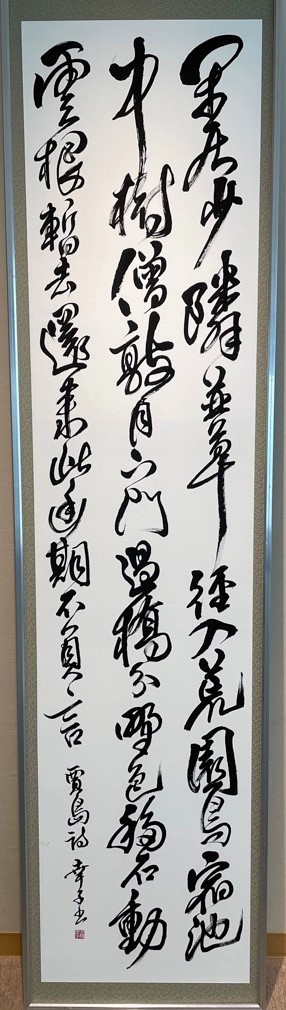 閑居少隣並草径入荒園鳥宿池
中樹僧敲月下門過橋分野色移石動
雲根暫去還来此幽期不負言 賈島詩 幸子書